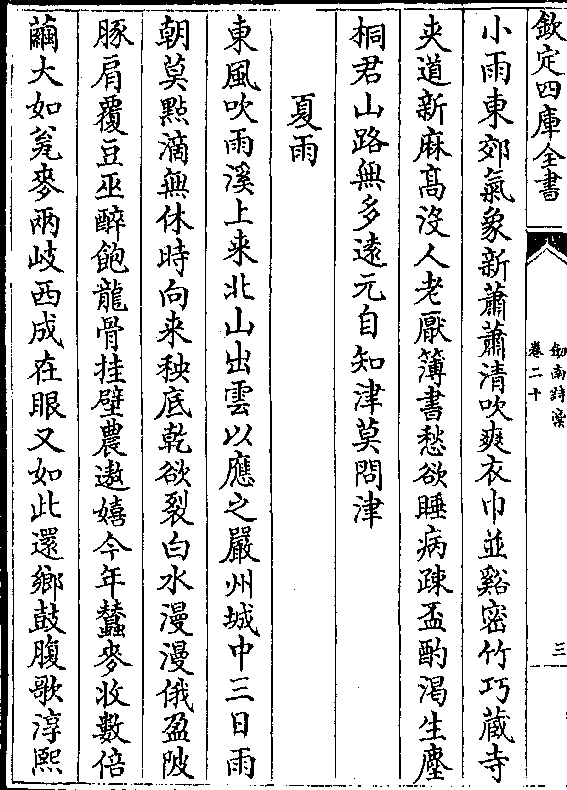 欽定四庫全書
劔南詩藁
卷二十
三
小雨東郊氣象新蕭蕭清吹爽衣巾並谿密竹巧藏寺
夾道新麻髙沒人老厭簿書愁欲睡病疎盃酌渴生塵
桐君山路無多逺元自知津莫問津
夏雨
東風吹雨溪上来北山出雲以應之嚴州城中三日雨
朝莫點滴無休時向来秧底乾欲裂白水漫漫俄盈陂
豚肩覆豆巫醉飽龍骨挂壁農遨嬉今年蠶麥收數倍
繭大如瓮麥兩岐西成在眼又如此還鄉鼓腹歌淳熙